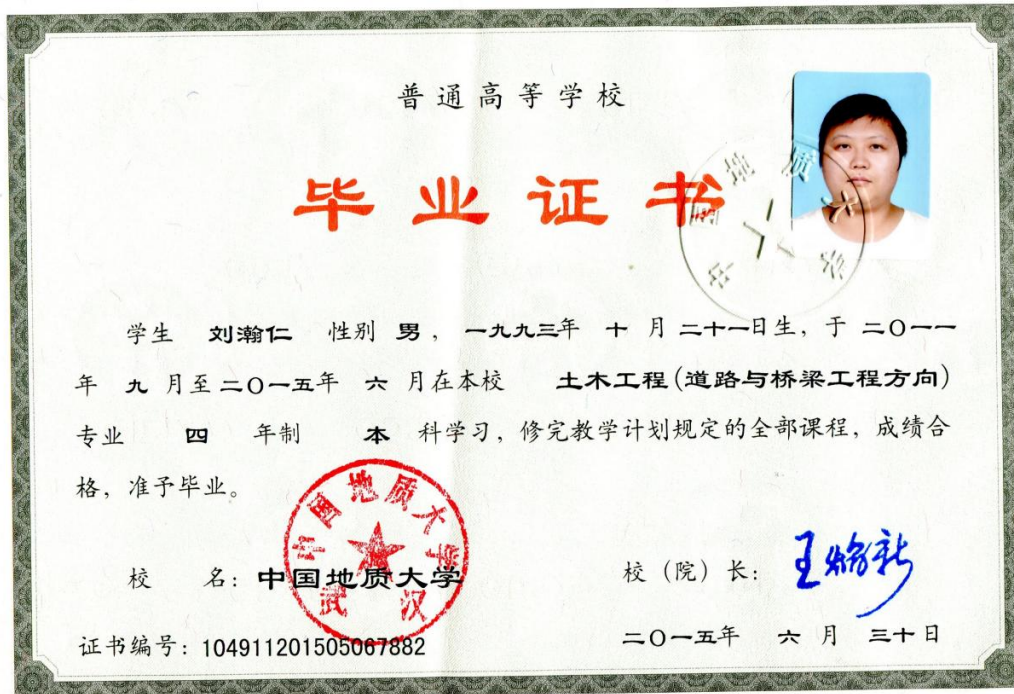 普通高等学校
毕业证书
学生 刘瀚仁 性别 男，一九九三年 十 月 二十一日生，于 二〇一一
年 九 月至二〇一五年 六 月在本校 土木工程(道路与桥梁工程方向)
专业 四 年制 本 科学习，修完教学计划规定的全部课程，成绩合
格，准予毕业。
中国地质大学
武汉
校 名：中国地质大学
校（院）长：王焰新
证书编号：104911201505067882
二〇一五年 六 月 三十日
中国地质大学